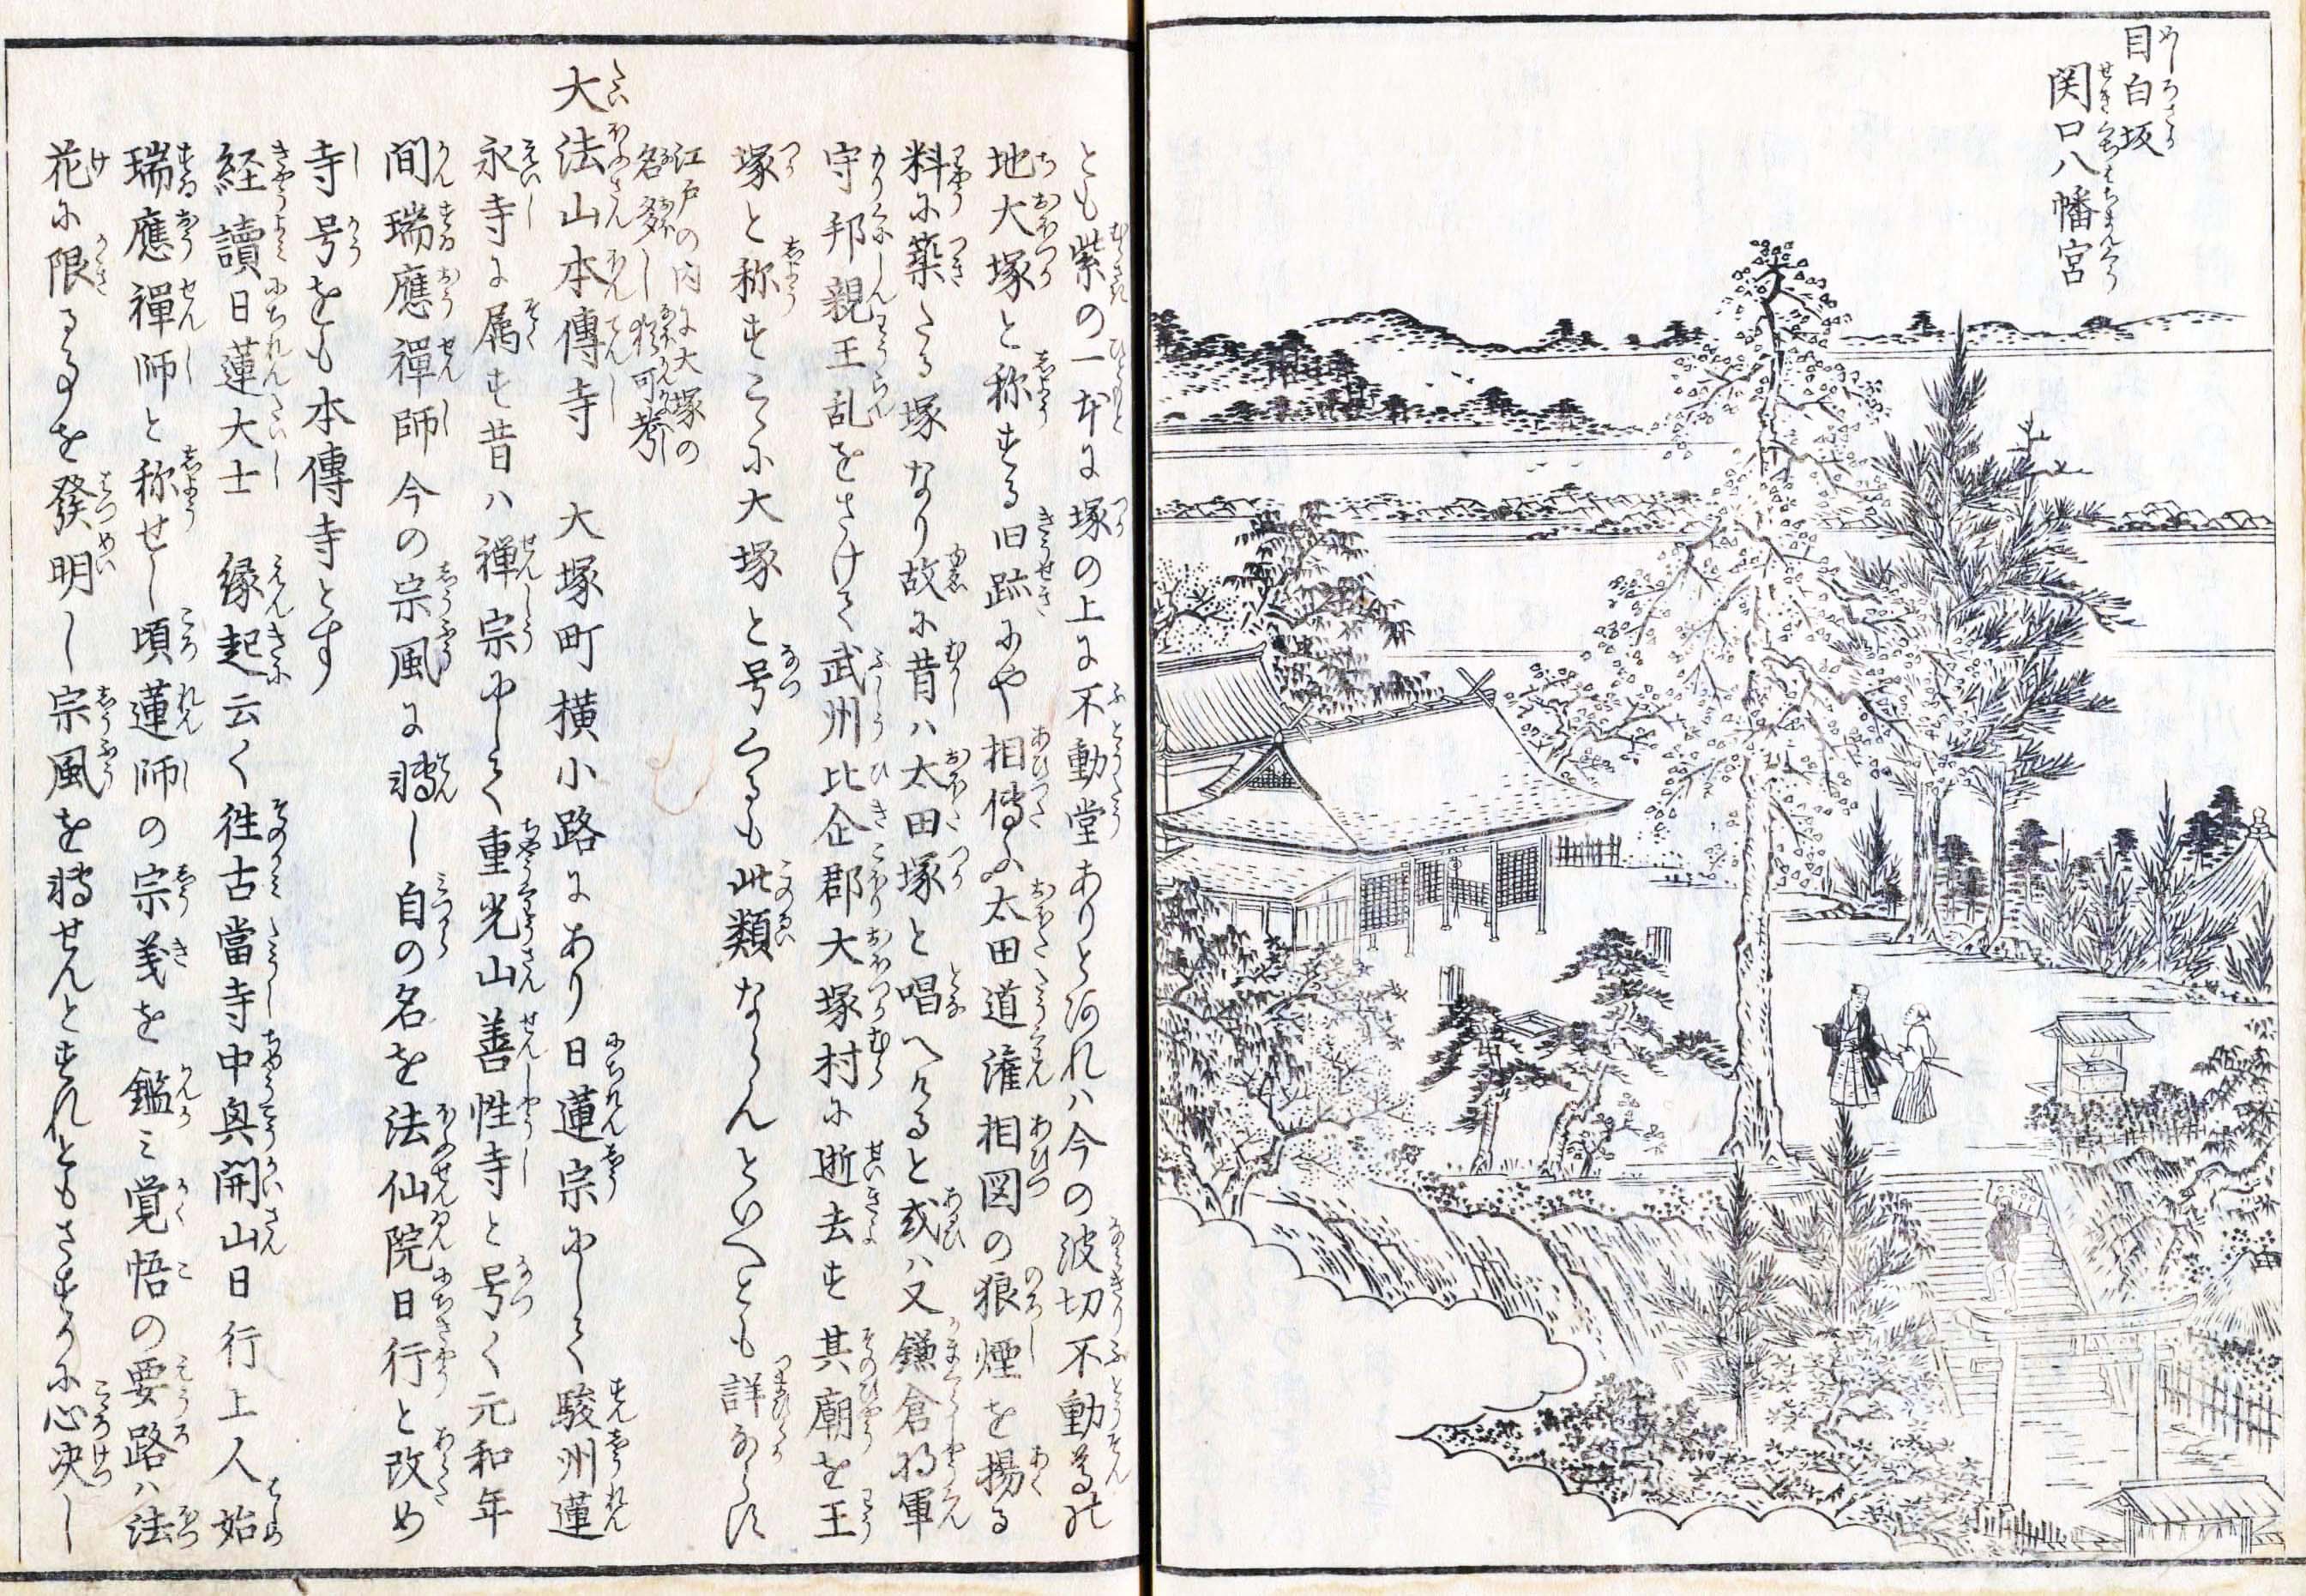 目白坂
関口八幡宮
とも紫の一本に塚の上に不動堂ありとあれハ今の波切不動尊の
地大塚と称する旧跡にや相傳ふ太田道潅相図の狼煙を揚る
料に築たる塚なり故に昔ハ太田塚と唱へけると或ハ又鎌倉将軍
守邦親王乱をさけて武州比企郡大塚村に逝去す其廟を王
塚と称すこゝに大塚と号くるも此類ならんといへとも詳ならす
江戸の内に大塚の
名多し猶可考
大法山本傳寺 大塚町横小路にあり日蓮宗にして駿州蓮
永寺に属す昔ハ禅宗にして重光山善性寺と号く元和年
間瑞應禪師今の宗風に轉し自の名を法仙院日行と改め
寺号をも本傳寺とす
経讀日蓮大士 縁起云く徃古當寺中興開山日行上人始
瑞應禪師と称せし頃蓮師の宗義を鑑ミ覚悟の要路ハ法
花に限るを發明し宗風を轉せんとすれともさすかに心决し